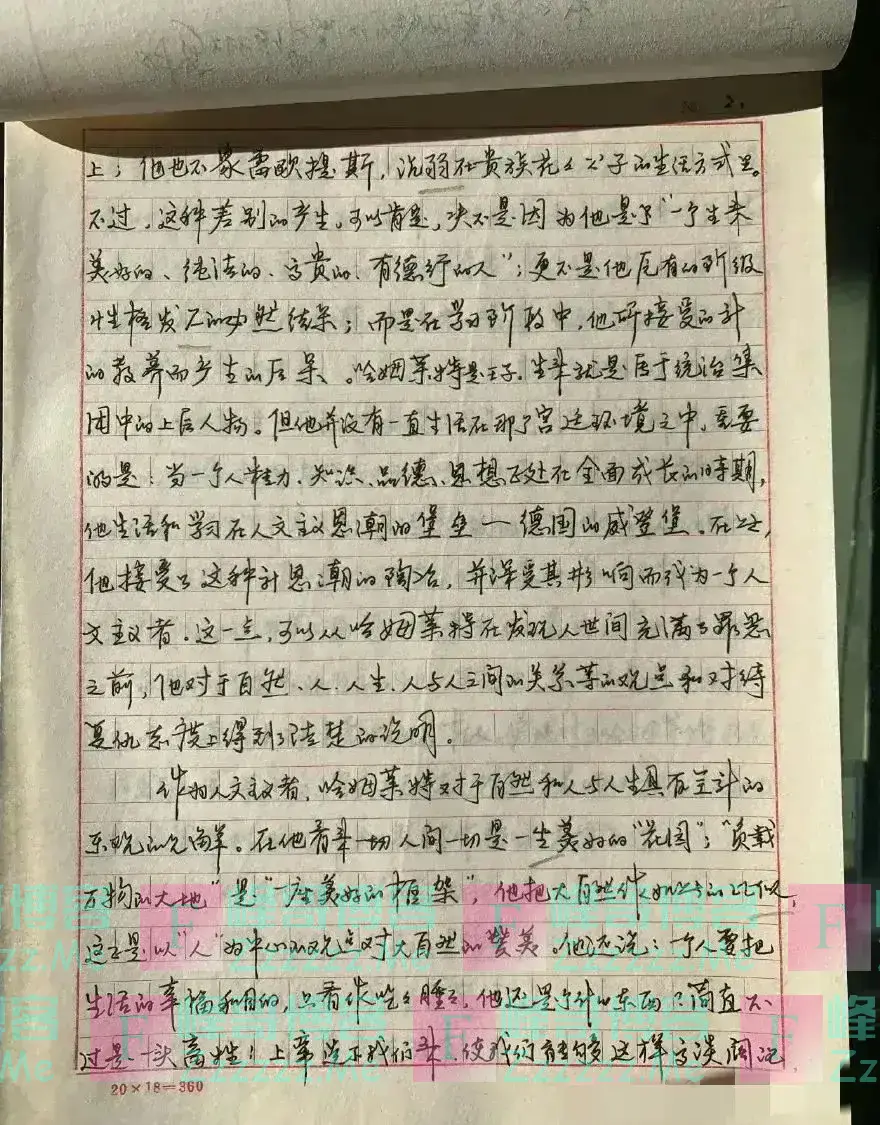 2.
上；他也不象雷欧提斯，沉弱在贵族花花公子的生活方式里。
不过，这种差别的产生，可以肯定，决不是因为他是个“一个生来
美好的、纯洁的、高贵的、有德行的人”；更不是他原有的阶级
性格发展的必然结果；而是在学习阶段中，他所接受的
的教养而产生的后果。哈姆莱特是王子，生来就是居于统治集
团中的上层人物。但他并没有一直生活在那个宫廷环境之中，重要
的是：当一个人精力、知识、品德、思想正处在全面成长的时期，
他生活和学习在人文主义思潮的堡垒—德国的威登堡。在这里，
他接受了这种新思潮的陶冶，并深受其影响而成为一个人
文主义者。这一点，可以从哈姆莱特在发现人世间充满了罪恶
之前，他对于自然、人、人生、人与人之间的关系等的观点和对待
复仇态度上得到了清楚的说明。
作为人文主义者，哈姆莱特对于自然和人与人生具有
乐观的见解。在他看来一切人间一切是一生美好的“花园”；“负载
万物的大地”是“一座美好的框架”，他把大自然作如此的比似，
这正是以“人”为中心的观点对大自然的赞美。他还说：一个人要把
生活的幸福和目的，只看作吃吃睡睡，他还是个什么东西？简直不
过是一头畜牲！上帝造下我们来，使我们能够这样高谈阔论，
20×18=360
峰哥博客
zzzzz.Me